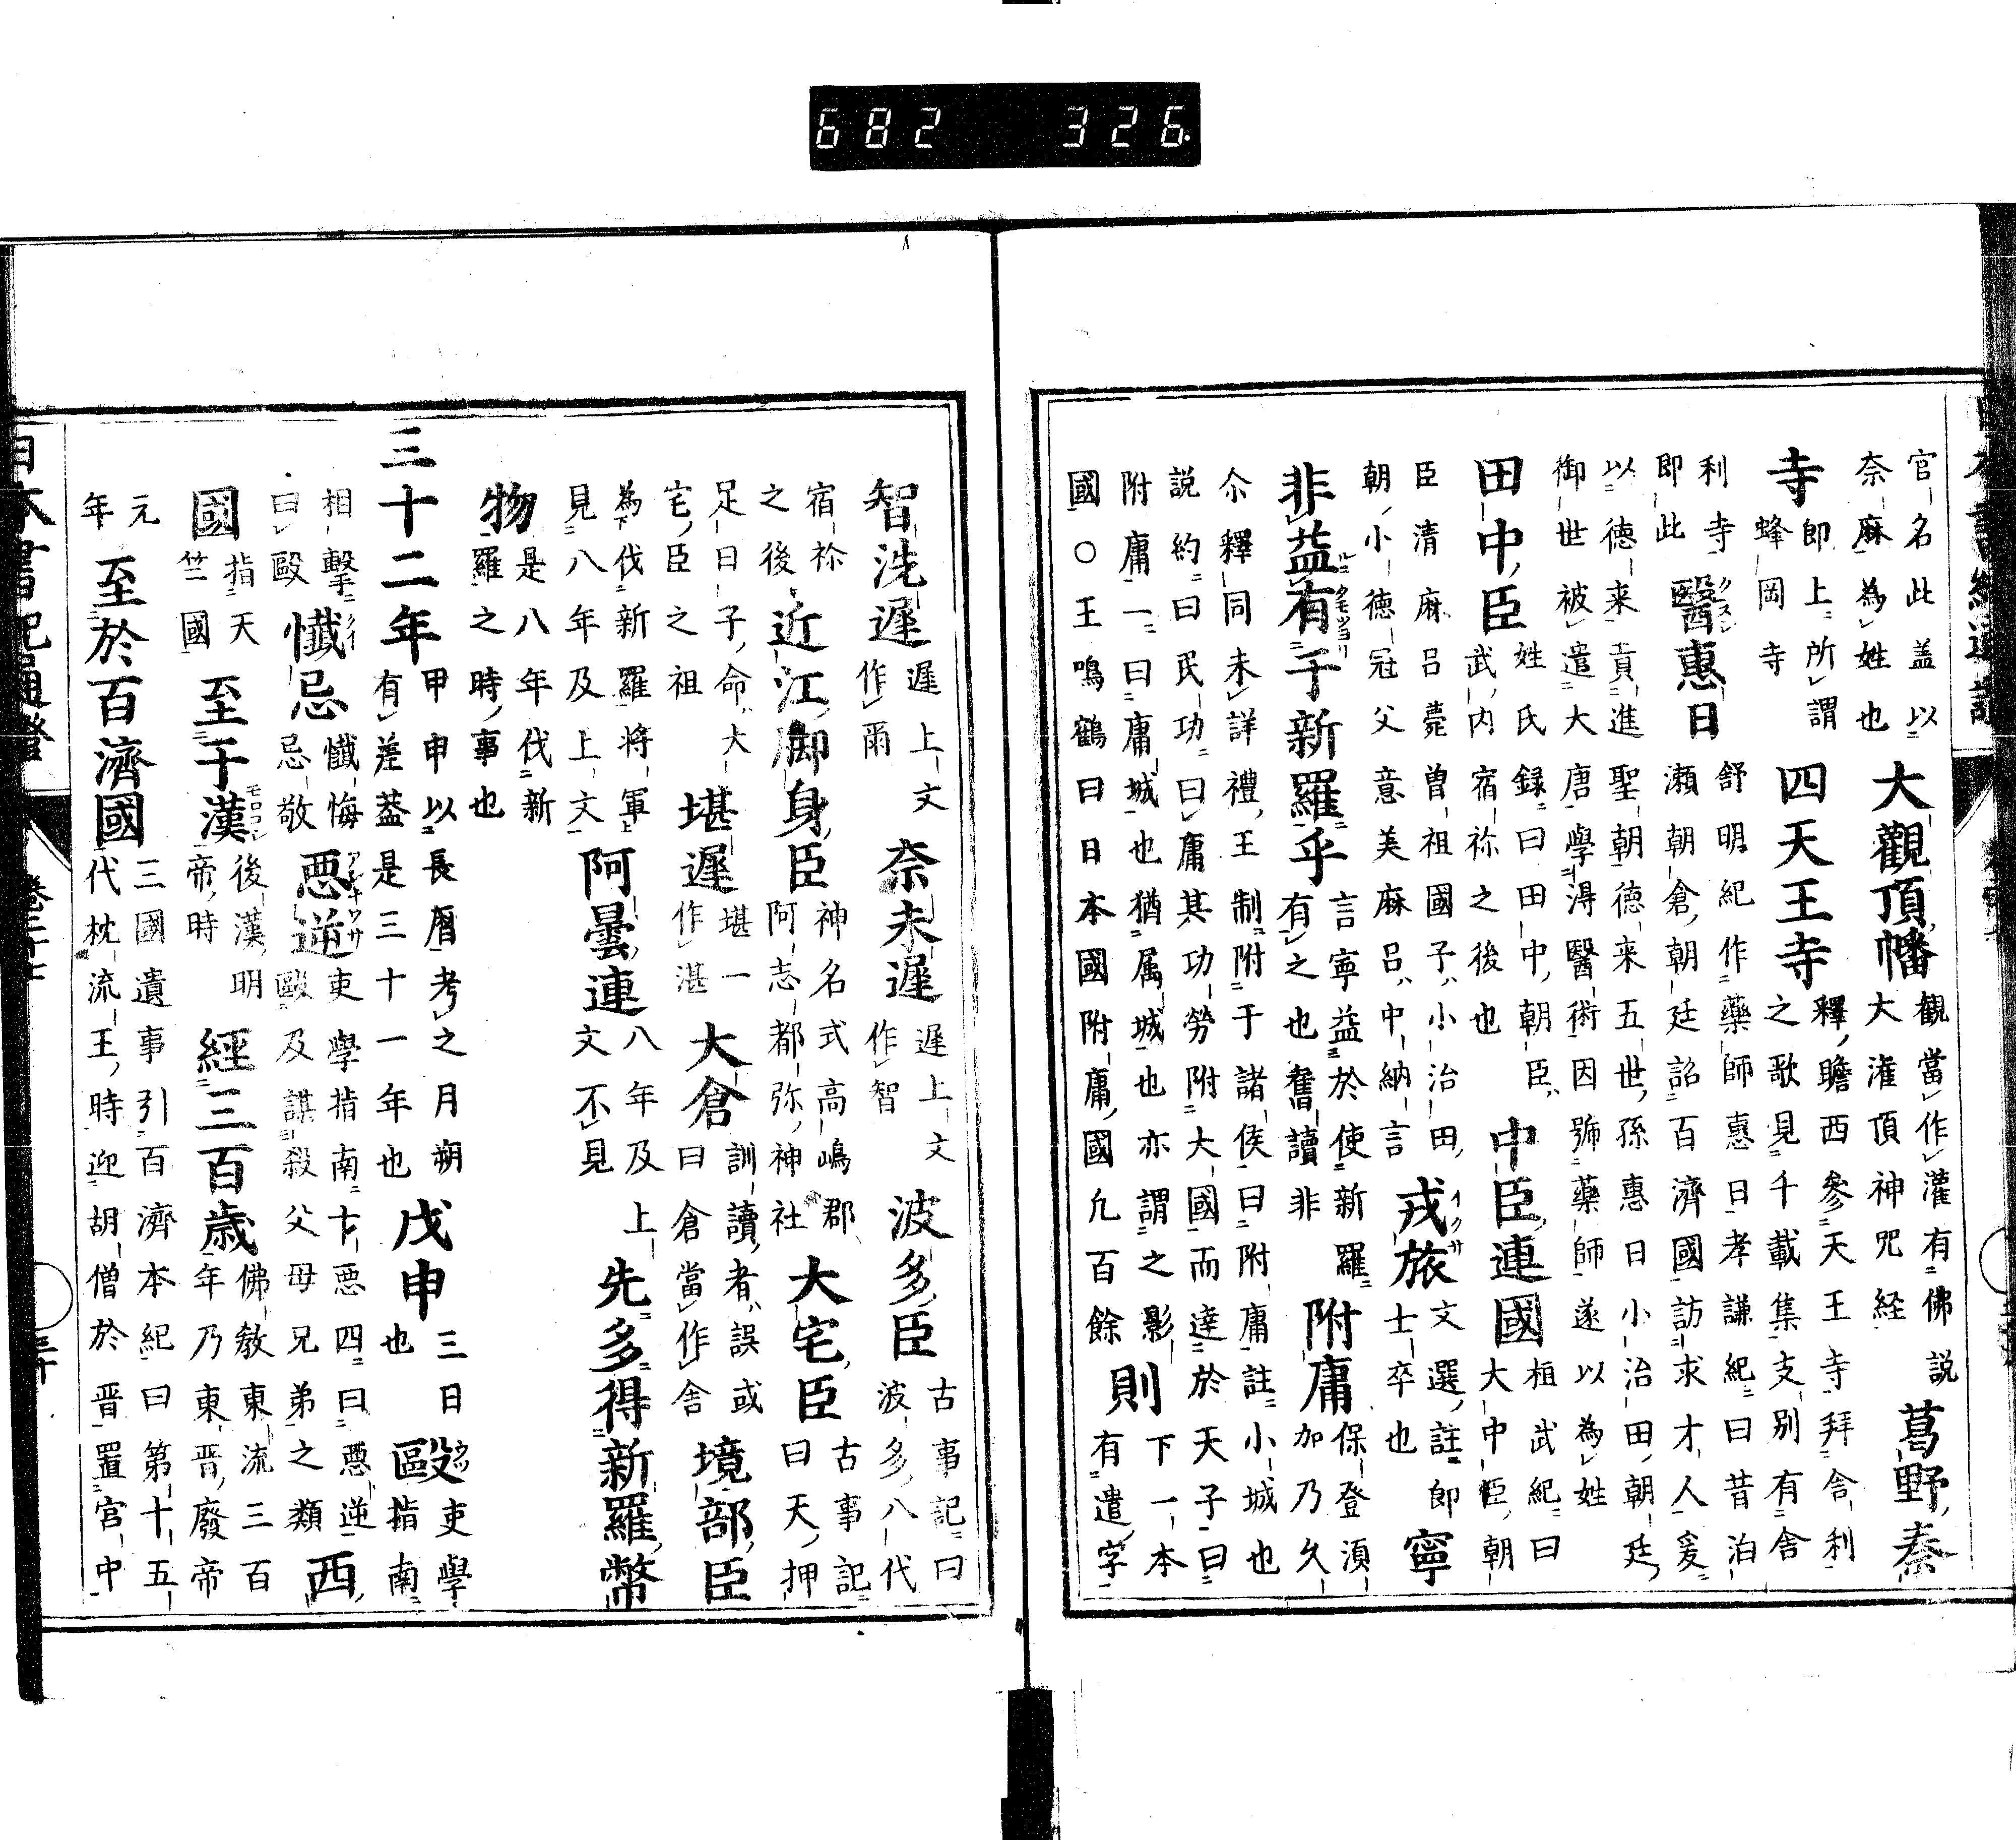 官名此盖以奈麻為姓也大觀頂幡觀當作灌有佛說大灌頂神咒経葛野秦
寺即上所謂蜂岡寺四天王寺釋瞻西參天王寺拜舎利之歌見千載集支別有舎
利寺即此醫惠日舒明紀作藥師惠日孝謙紀曰昔泊瀬朝倉朝廷詔百濟國訪求才人爰
以德来貢進聖朝德来五世孫惠日小治田朝廷御世被遣大唐學淂醫術因號藥師遂以為姓
田中臣姓氏録曰田中朝臣武内宿祢之後也中臣連國桓武紀曰大中臣朝
臣清麻呂薨曽祖國子小治田朝小德冠父意美麻呂中納言戎旅文選註即士卒也寧
非益有于新羅乎言寧益於使新羅有之也舊讀非附庸保登湏加乃久
尒釋同未詳禮王制附于諸侯曰附庸註小城也説約曰民功曰庸其功勞附大國而達於天子曰
附庸一曰庸城也猶属城也亦謂之影國○王鳴鶴曰日本國附庸國凢百餘則下一本有遣字
智洗遲遲上文作爾奈末遲遲上文作智波多臣古事記曰波多八代
宿祢之後近江脚身臣神名式高嶋郡阿志都弥神社大宅臣古事記曰天押
足日子命大宅臣之祖堪遲堪一作湛大倉訓讀者誤或曰倉當作舍境部臣
為下伐新羅将軍上見八年及上文阿曇連八年及上文不見先多得新羅幣
物是八年伐新羅之時事也
三十二年甲申以長暦考之月朔有差葢是三十一年也戊申三日也毆吏學指南
相擊曰毆懺忌懺悔忌敬惡逆吏學指南十惡四曰惡逆毆及謀殺父母兄弟之類西
國指天竺國至于漢後漢明帝時經三百歳佛教東流三百年乃東晋廢帝
元年至於百濟國三國遺事引百濟本紀曰第十五代枕流王時迎胡僧於晋置宮中
日本書紀通證
三十
682 326